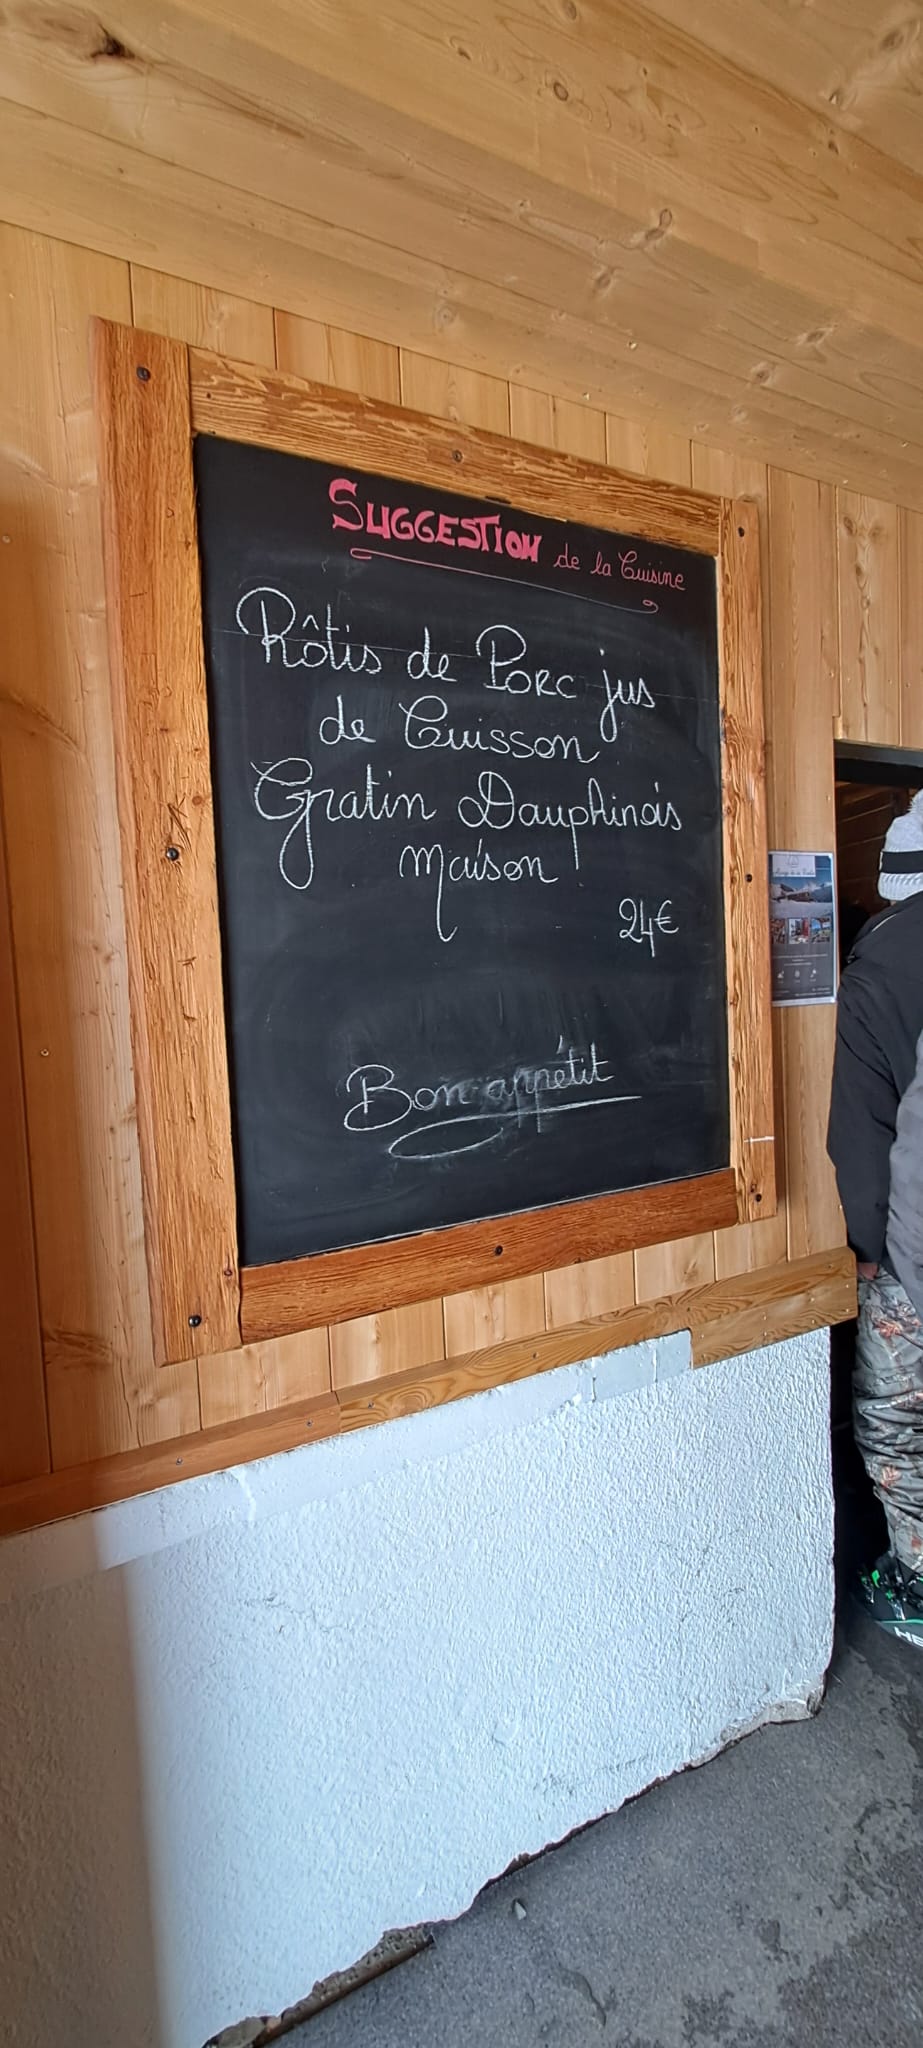 SUGGESTION de la Cuisine
Rôtis de Porc jus
de Cuisson
Gratin Dauphinois
maison
24€
Bon appétit